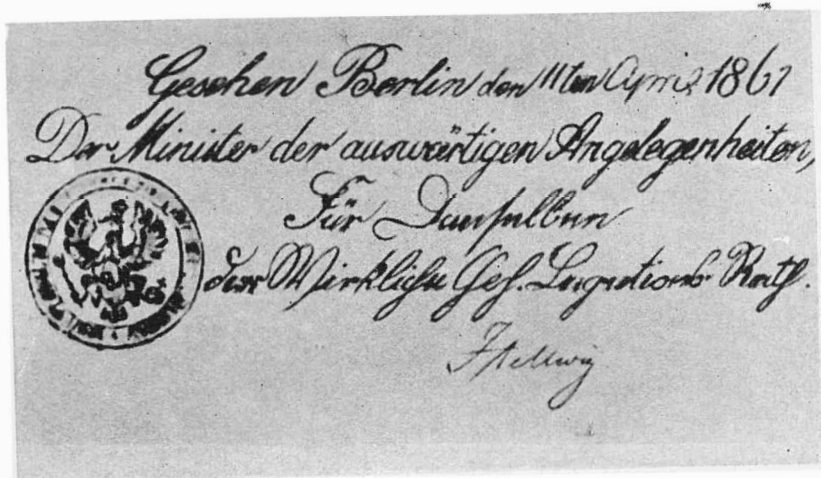 Gesehen Berlin den 11ten April 1861
Der Minister der auswärtigen Angelegenheiten,
Für Denselben
der Wirkliche Geh. Legations-Rath.
Hellwig